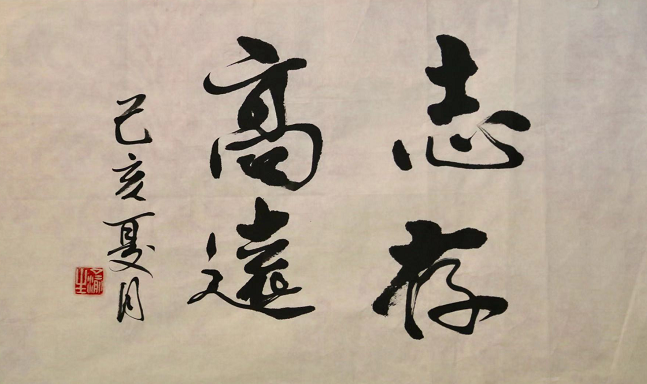 志存
高遠
己亥夏月